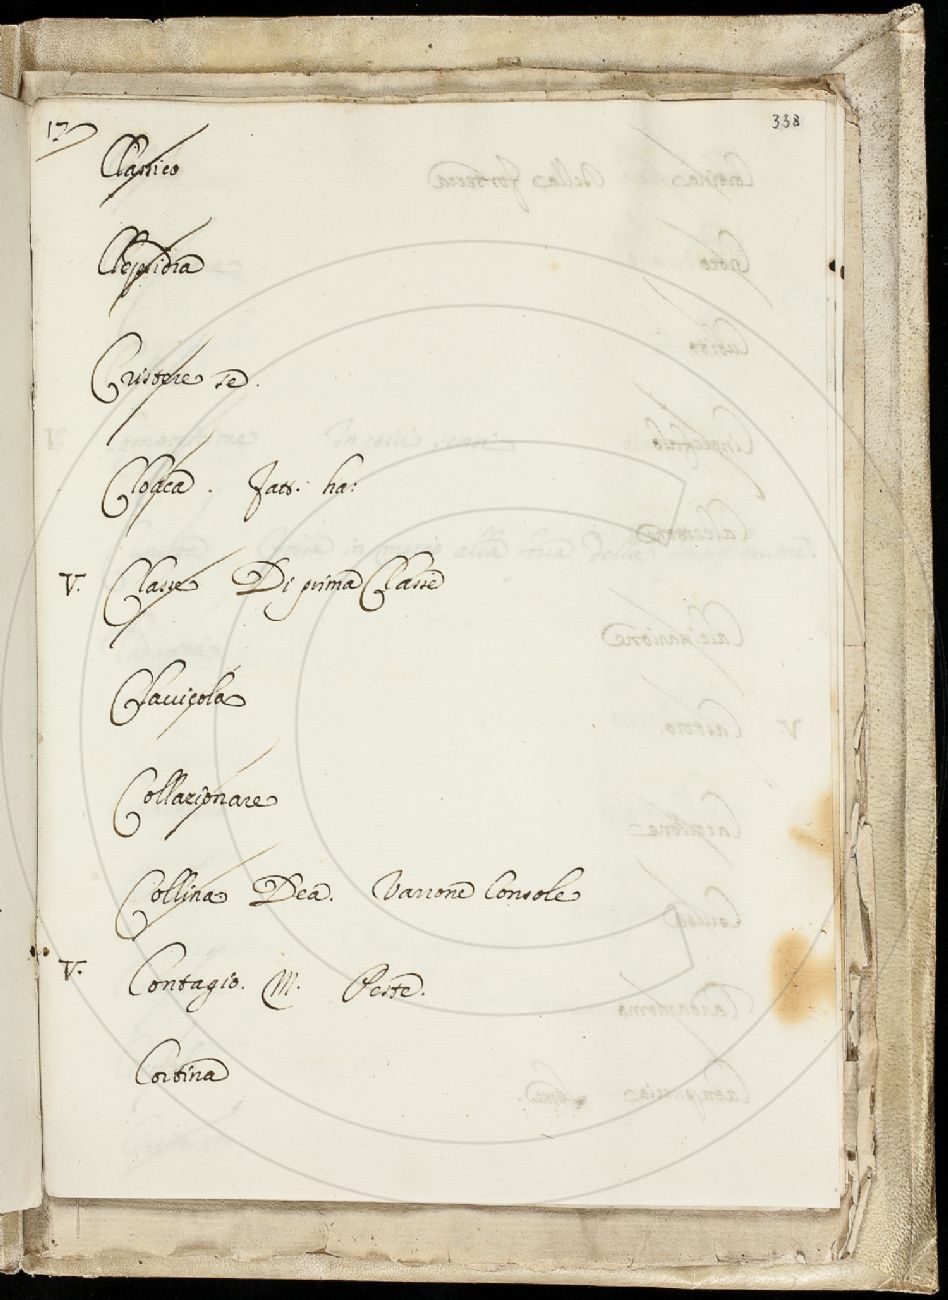 17
338
Classico
Clepsidra
Cristere se.
Cloaca. Fatt. ha:
V. Classe Di prima Classe
Clavicola
Collazionare
Collina Dea. Varrone Console
V. Contagio. M. Peste.
Cortina